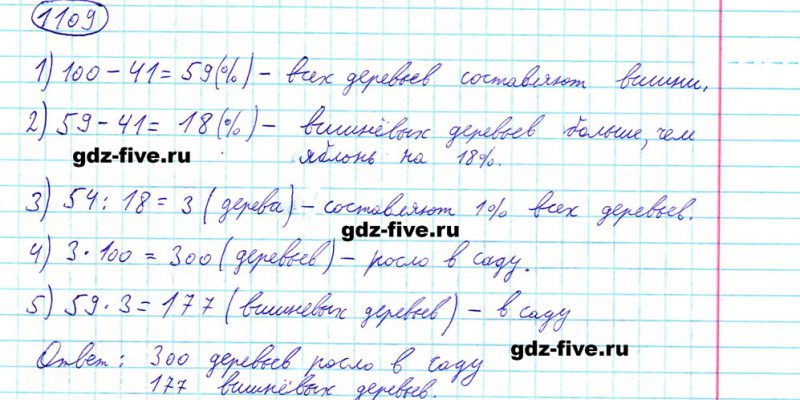 1109
1) 100 - 41 = 59 (%) - всех деревьев составляют вишни.
2) 59 - 41 = 18 (%) - вишнёвых деревьев больше, чем
яблонь на 18%.
gdz-five.ru
3) 54 : 18 = 3 (дерева) - составляют 1% всех деревьев.
gdz-five.ru
4) 3 · 100 = 300 (деревьев) - росло в саду.
5) 59 · 3 = 177 (вишневых деревьев) - в саду
Ответ: 300 деревьев росло в саду
gdz-five.ru
177 вишнёвых деревьев.